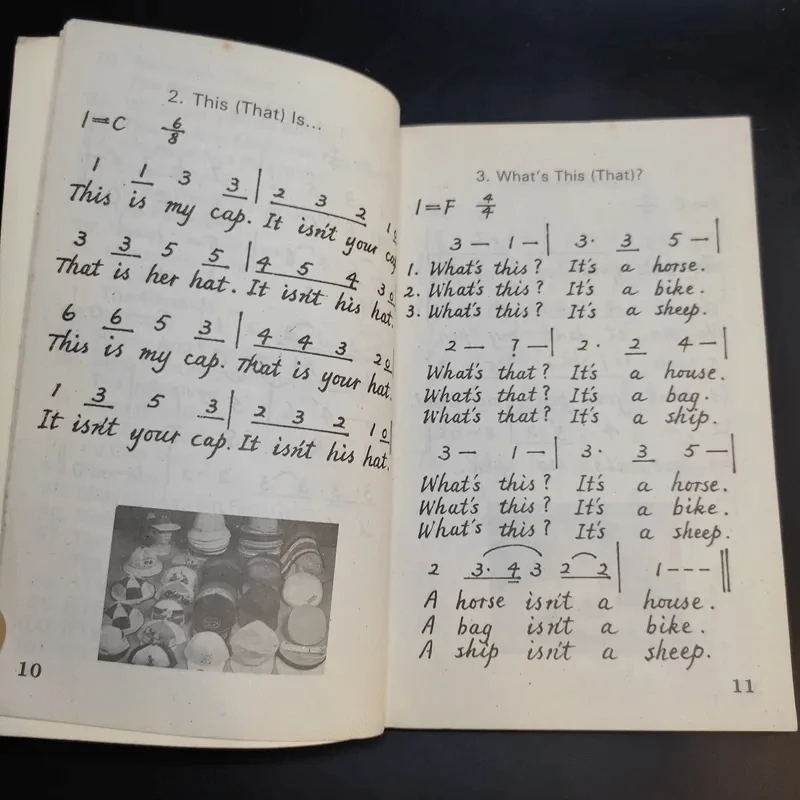 2. This (That) Is...
1=C 6/8
1 1 3 3 | 2 3 2 1 0
This is my cap. It isn't your cap
3 3 5 5 | 4 5 4 3 0
That is her hat. It isn't his hat.
6 6 5 3 | 4 4 3 2 0 |
This is my cap. That is your hat.
1 3 5 3 | 2 3 2 1 0 |
It isn't your cap. It isn't his hat.
10
3. What's This (That)?
1=F 4/4
3 — 1 — | 3· 3 5 — |
1. What's this? It's a horse.
2. What's this? It's a bike.
3. What's this? It's a sheep.
2 — 7̣ — | 2· 2 4 — |
What's that? It's a house.
What's that? It's a bag.
What's that? It's a ship.
3 — 1 — | 3· 3 5 — |
What's this? It's a horse.
What's this? It's a bike.
What's this? It's a sheep.
2 3· 4 3 2 2 | 1 - - - ‖
A horse isn't a house.
A bag isn't a bike.
A ship isn't a sheep.
11